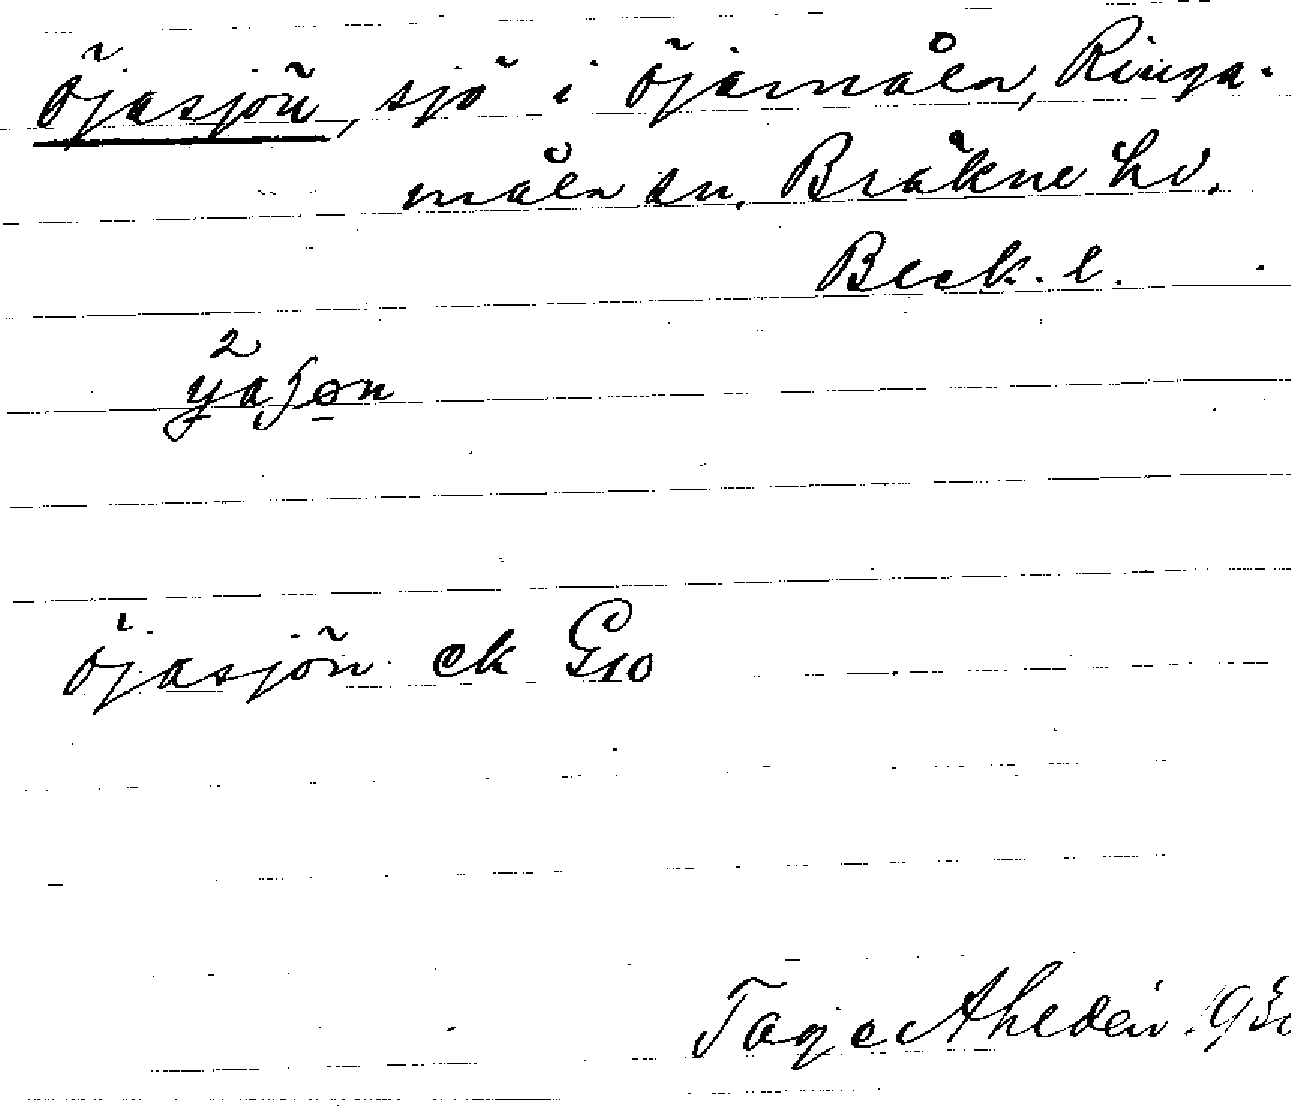 Öjasjön, sjö i Öjamåla, Ringa-
måla sn. Bräkne hd.
Blek. l.
Öjasjön ek G10
Tage Ahldén. 930